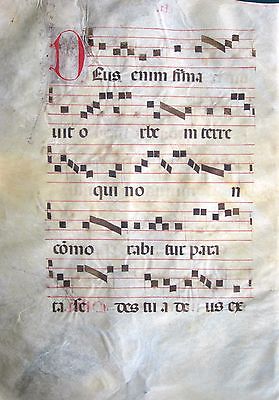 Deus enim firma
uit o rbe m terre
qui no n
cōmo uebi tur para
ta se des tu a de us ex